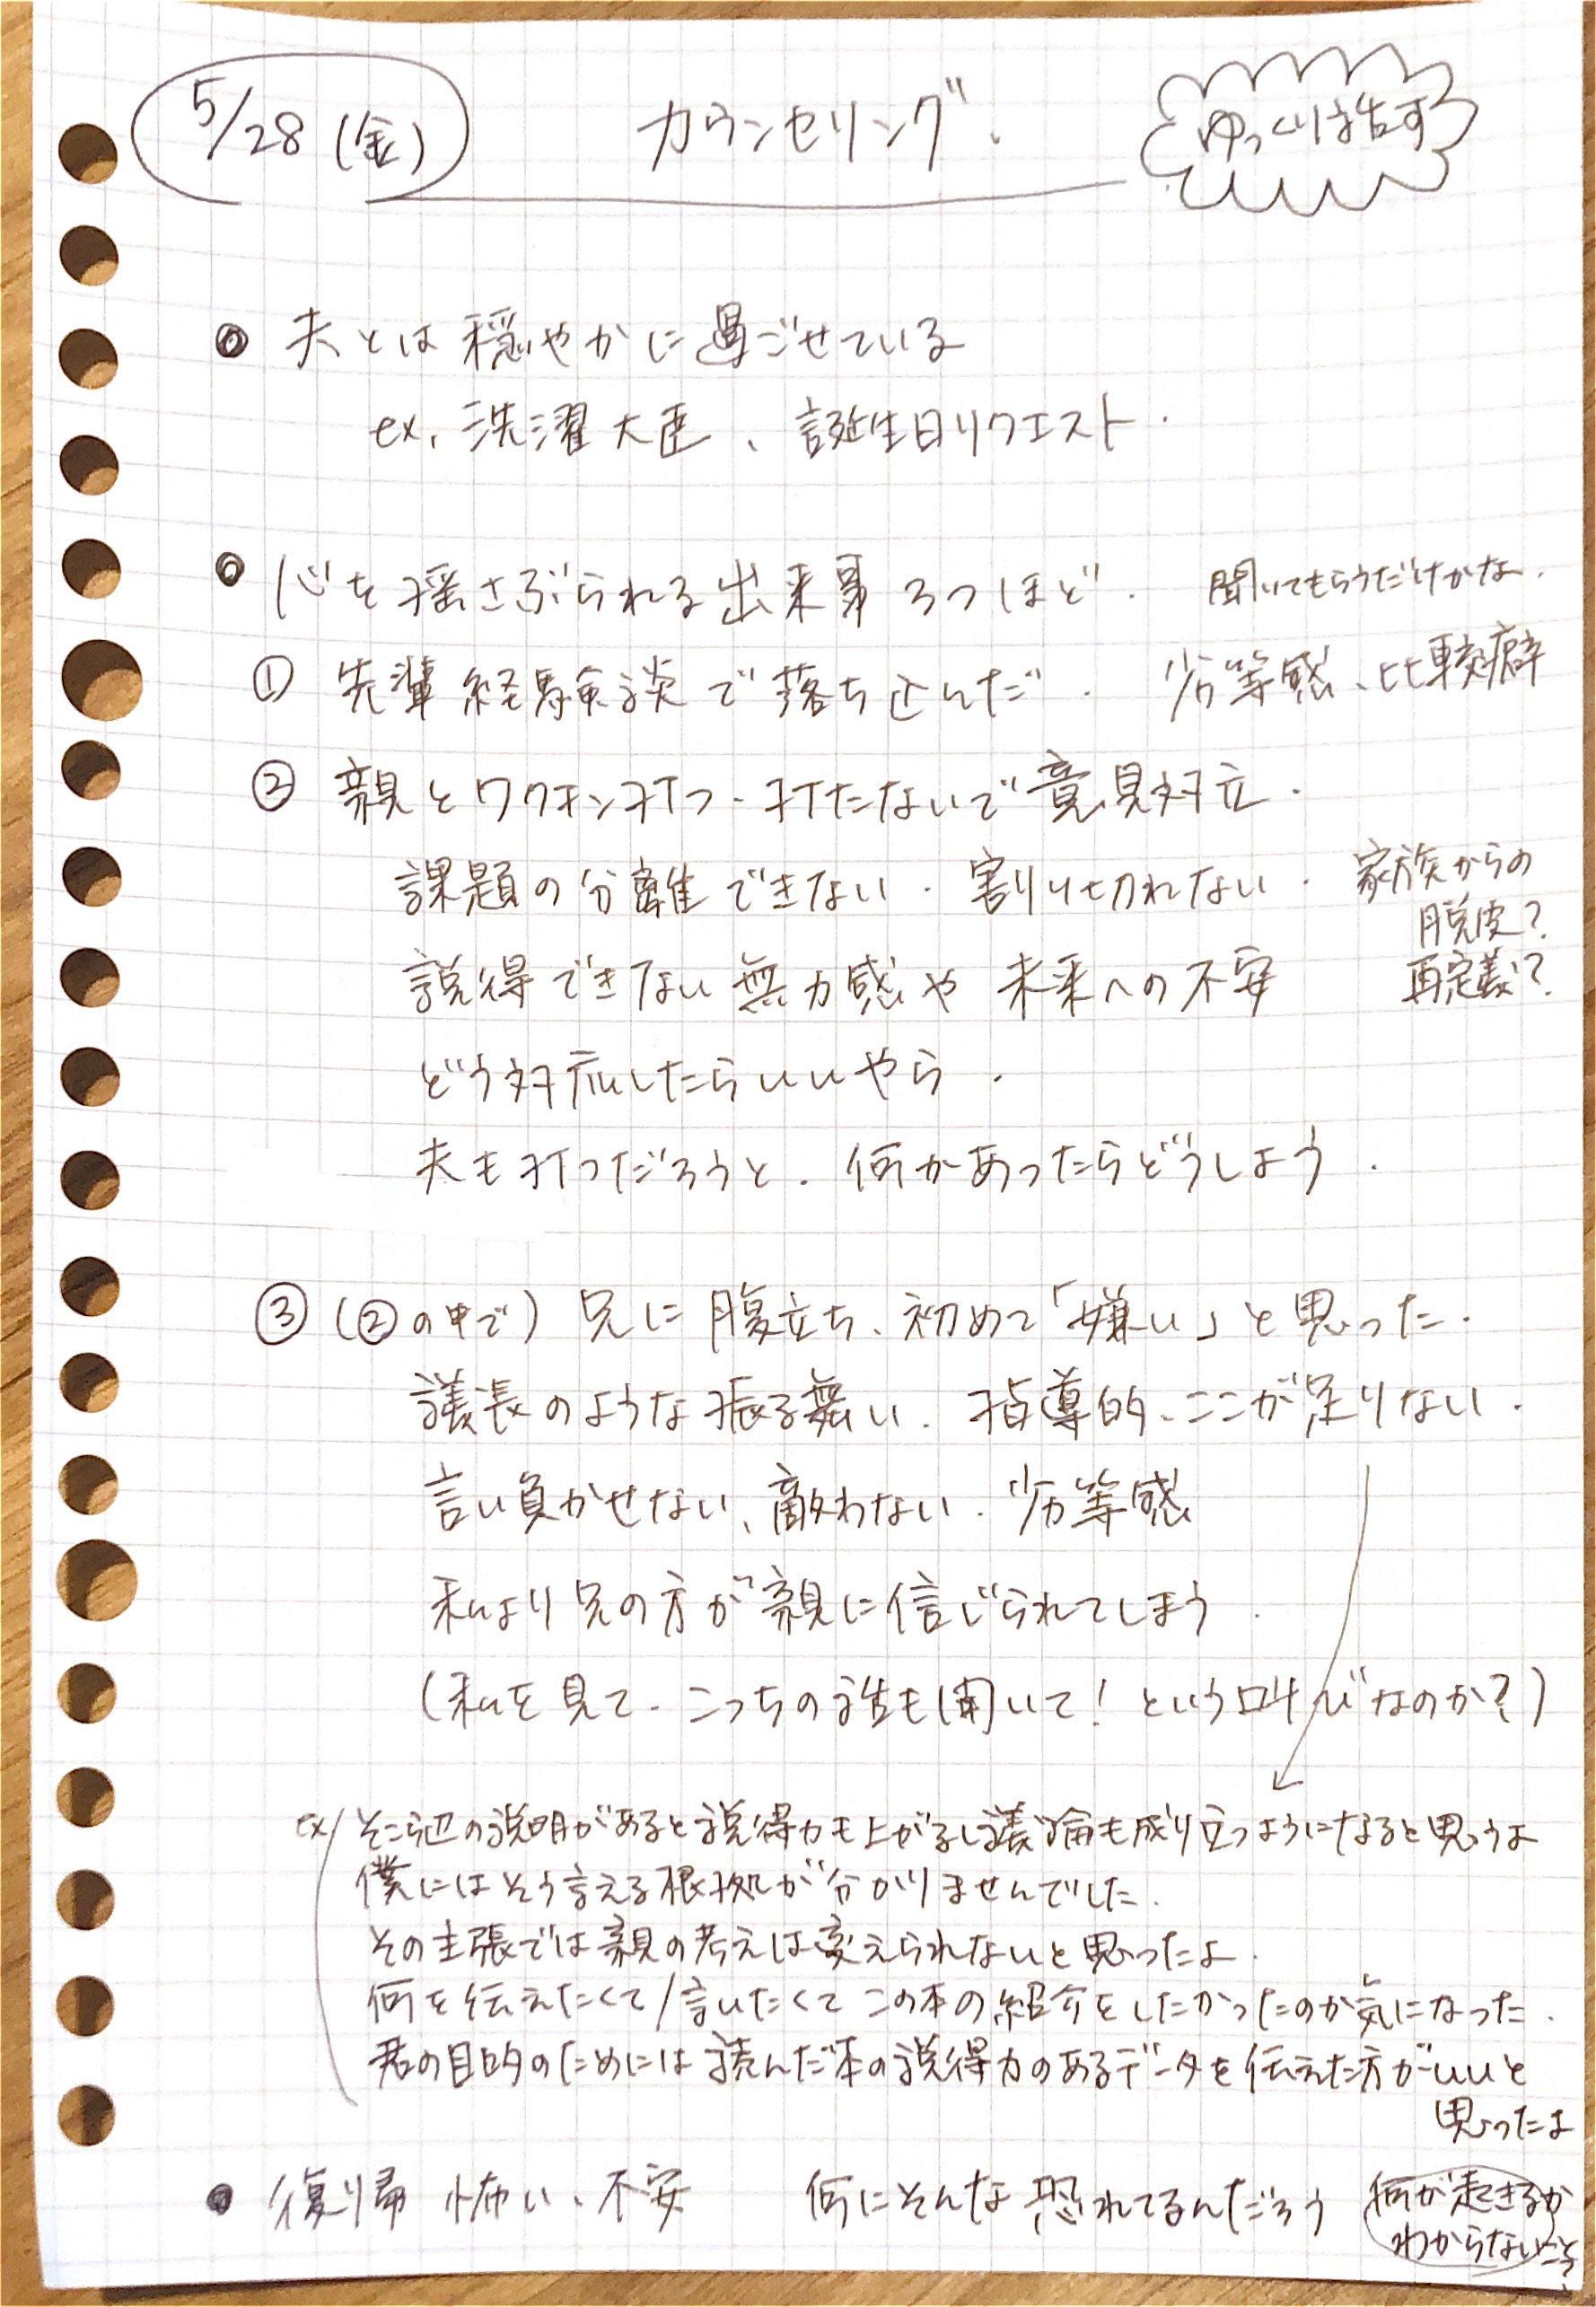 5/28(金) カウンセリング. ゆっくり話す
● 夫とは穏やかに過ごせている
ex. 洗濯大臣、誕生日リクエスト.
● 心を揺さぶられる出来事 3つほど. 聞いてもらうだけかな.
① 先輩経験談で落ち込んだ. 劣等感、比較癖
② 親とワクチン打つ・打たないで意見対立.
課題の分離できない. 割り切れない.
家族からの
脱皮?
再定義?
説得できない無力感や未来への不安
どう対応したらいいやら.
夫も打つだろうと. 何かあったらどうしよう.
③ (②の中で) 兄に腹立ち、初めて「嫌い」と思った.
議長のような振る舞い. 指導的、ここが足りない.
言い負かせない、敵わない. 劣等感
私より兄の方が親に信じられてしまう.
(私を見て. こっちの話も聞いて! という叫びなのか?)
ex/ そこら辺の説明があると説得力も上がるし議論も成り立つようになると思うよ
僕にはそう言える根拠が分かりませんでした.
その主張では親の考えは変えられないと思ったよ.
何を伝えたくて/言いたくてこの本の紹介をしたかったのか気になった.
君の目的のためには読んだ本の説得力のあるデータを伝えた方がいいと
思ったよ
● 復帰 怖い、不安 何にそんな恐れてるんだろう
何が起きるか
わからないこと?